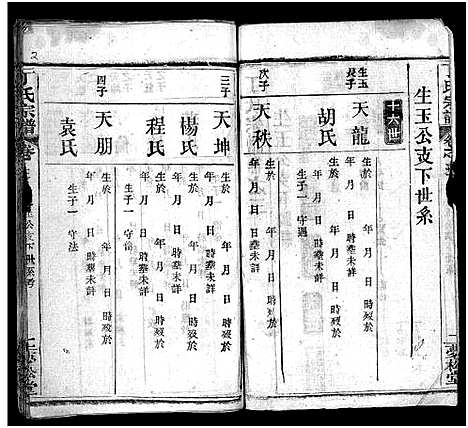 丁氏宗譜
生玉公支下世系
十六世
生玉長子
天龍
生於 年 月 日 時歿於
年 月 日 時塟未詳
胡氏
生子一 守遇
次子
天秩
生於 年 月 日 時歿於
年 月 日 時塟未詳
三子
天坤
生於 年 月 日 時歿於
年 月 日 時塟未詳
楊氏
生於 年 月 日 時歿於
程氏
年 月 日 時塟未詳
生子一 守倫
四子
天朋
生於 年 月 日 時歿於
年 月 日 時塟未詳
袁氏
生子一 守法
丁氏宗譜
夢松堂